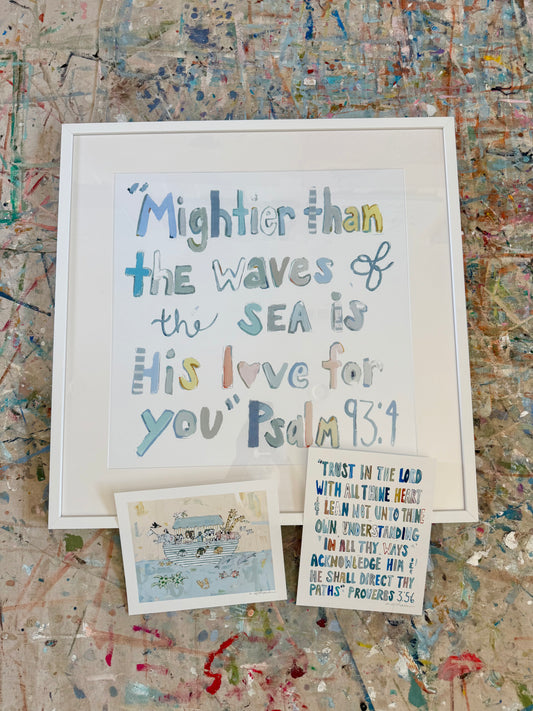 "Mightier than
the waves of
the SEA is
His love for
you" Psalm 93:4
"TRUST IN THE LORD
WITH ALL THINE HEART
& LEAN NOT UNTO THINE
OWN UNDERSTANDING
IN ALL THY WAYS
ACKNOWLEDGE HIM &
HE SHALL DIRECT THY
PATHS" PROVERBS 3:56